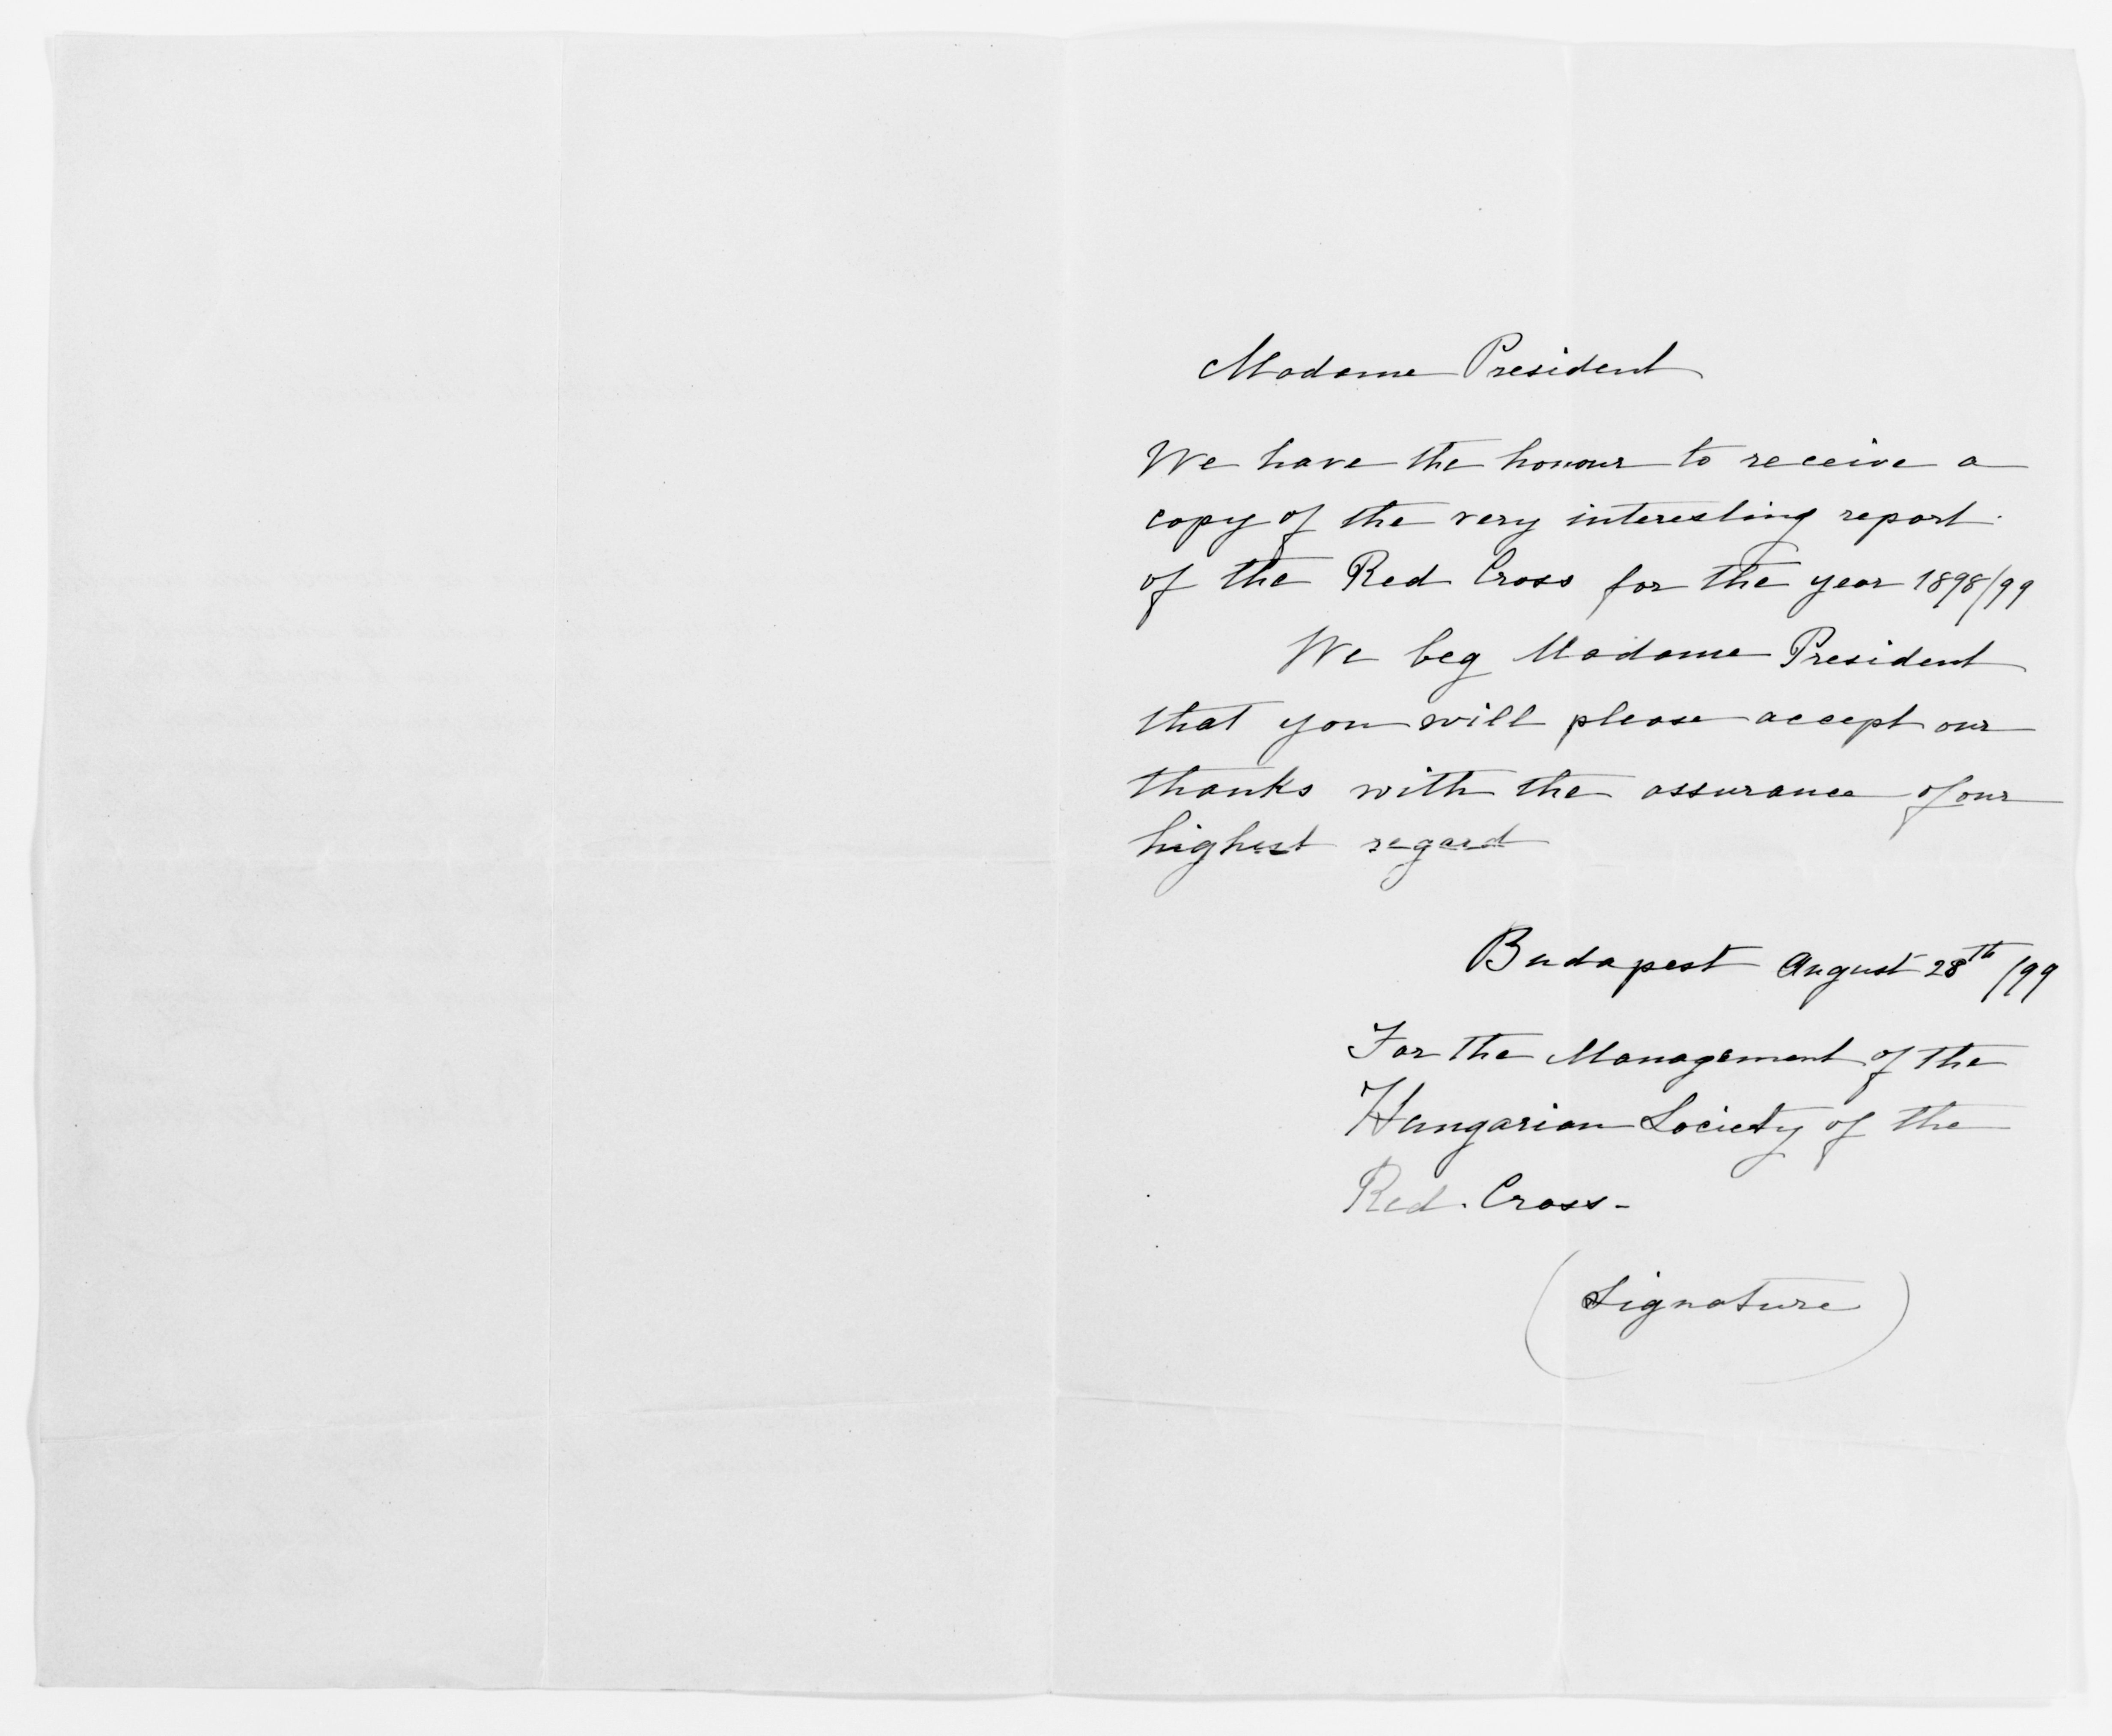 Madame President
We have the honour to receive a
copy of the very interesting report
of the Red Cross for the year 1898/99
We beg Madame President
that you will please accept our
thanks with the assurance of our
highest regard
Budapest August 28th /99
For the Management of the
Hungarian Society of the
Red. Cross-
(Signature)